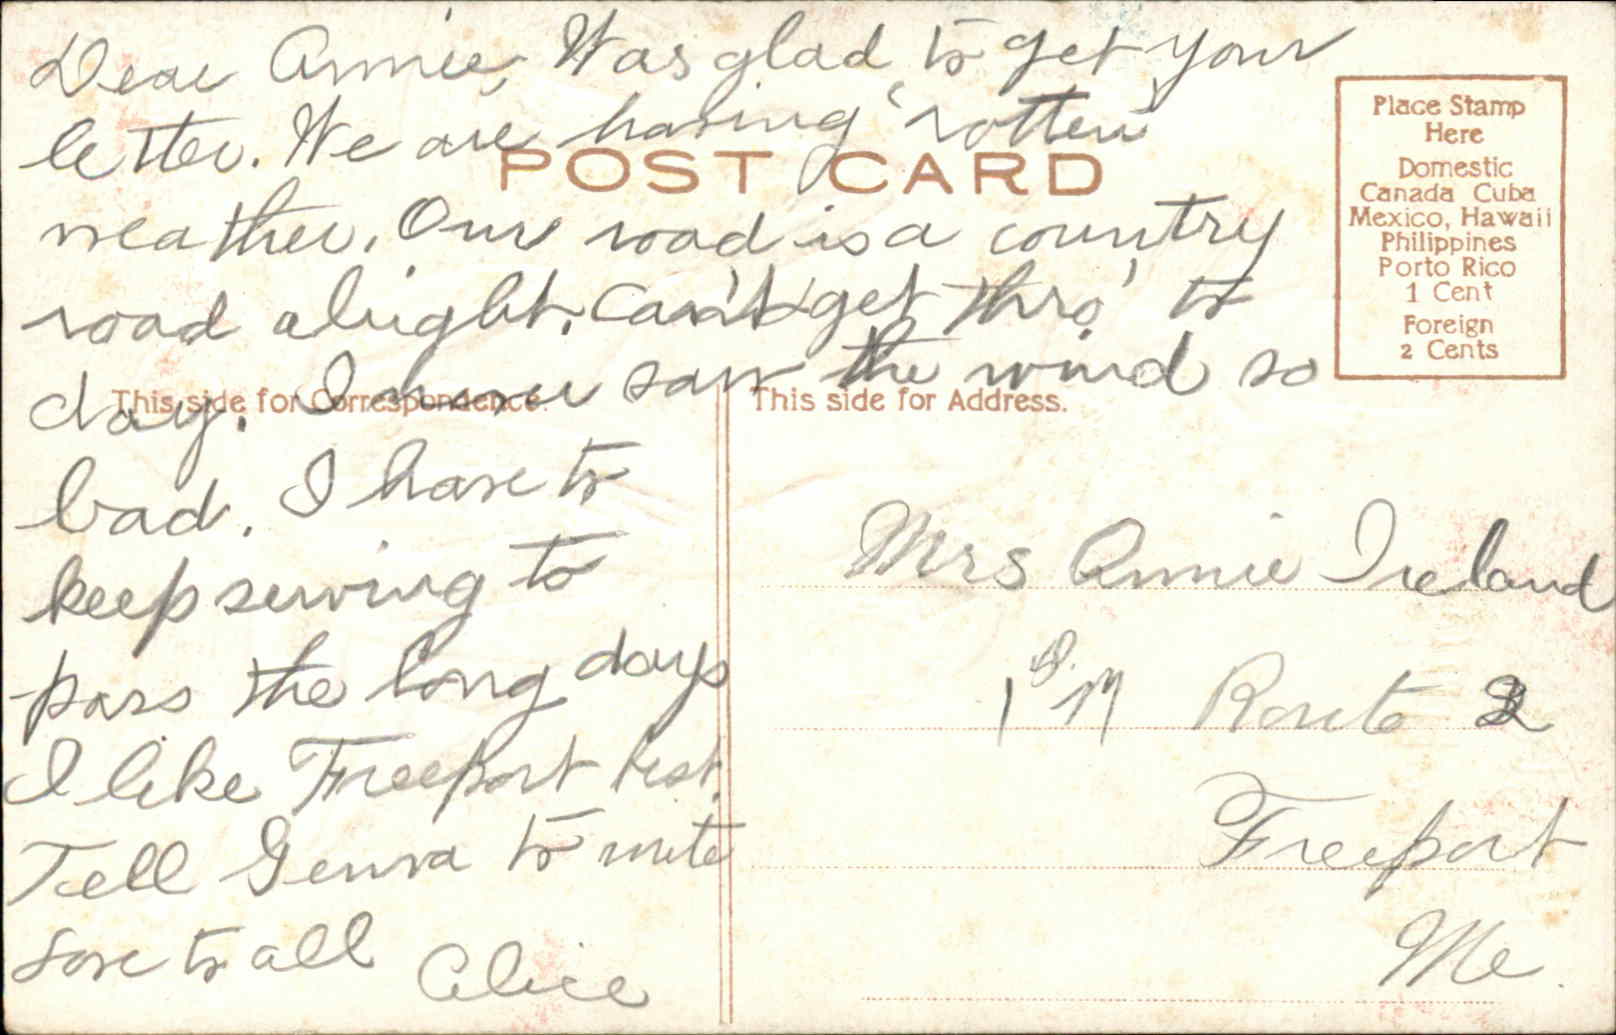 Dear Annie, Was glad to get your
letter. We are having rotten
POST CARD
weather. Our road is a country
road alright. Can't get thro' to
day. I never saw the wind so
bad. I have to
keep sewing to
pass the long days
I like Freeport best.
Tell Geneva to write
Love to all Alice
Place Stamp
Here
Domestic
Canada Cuba
Mexico, Hawaii
Philippines
Porto Rico
1 Cent
Foreign
2 Cents
This side for Correspondence.
This side for Address.
Mrs Annie Ireland
Route 2
Freeport
Me.